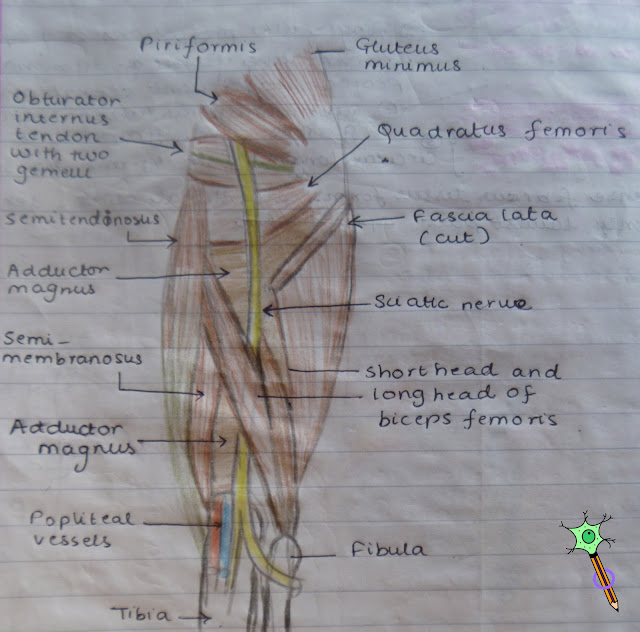 Piriformis
Gluteus
minimus
Obturator
internus
tendon
with two
gemelli
Quadratus femoris
Semitendonosus
Fascia lata
(cut)
Adductor
magnus
Sciatic nerve
Semi-
membranosus
Short head and
long head of
biceps femoris
Adductor
magnus
Popliteal
vessels
Fibula
Tibia